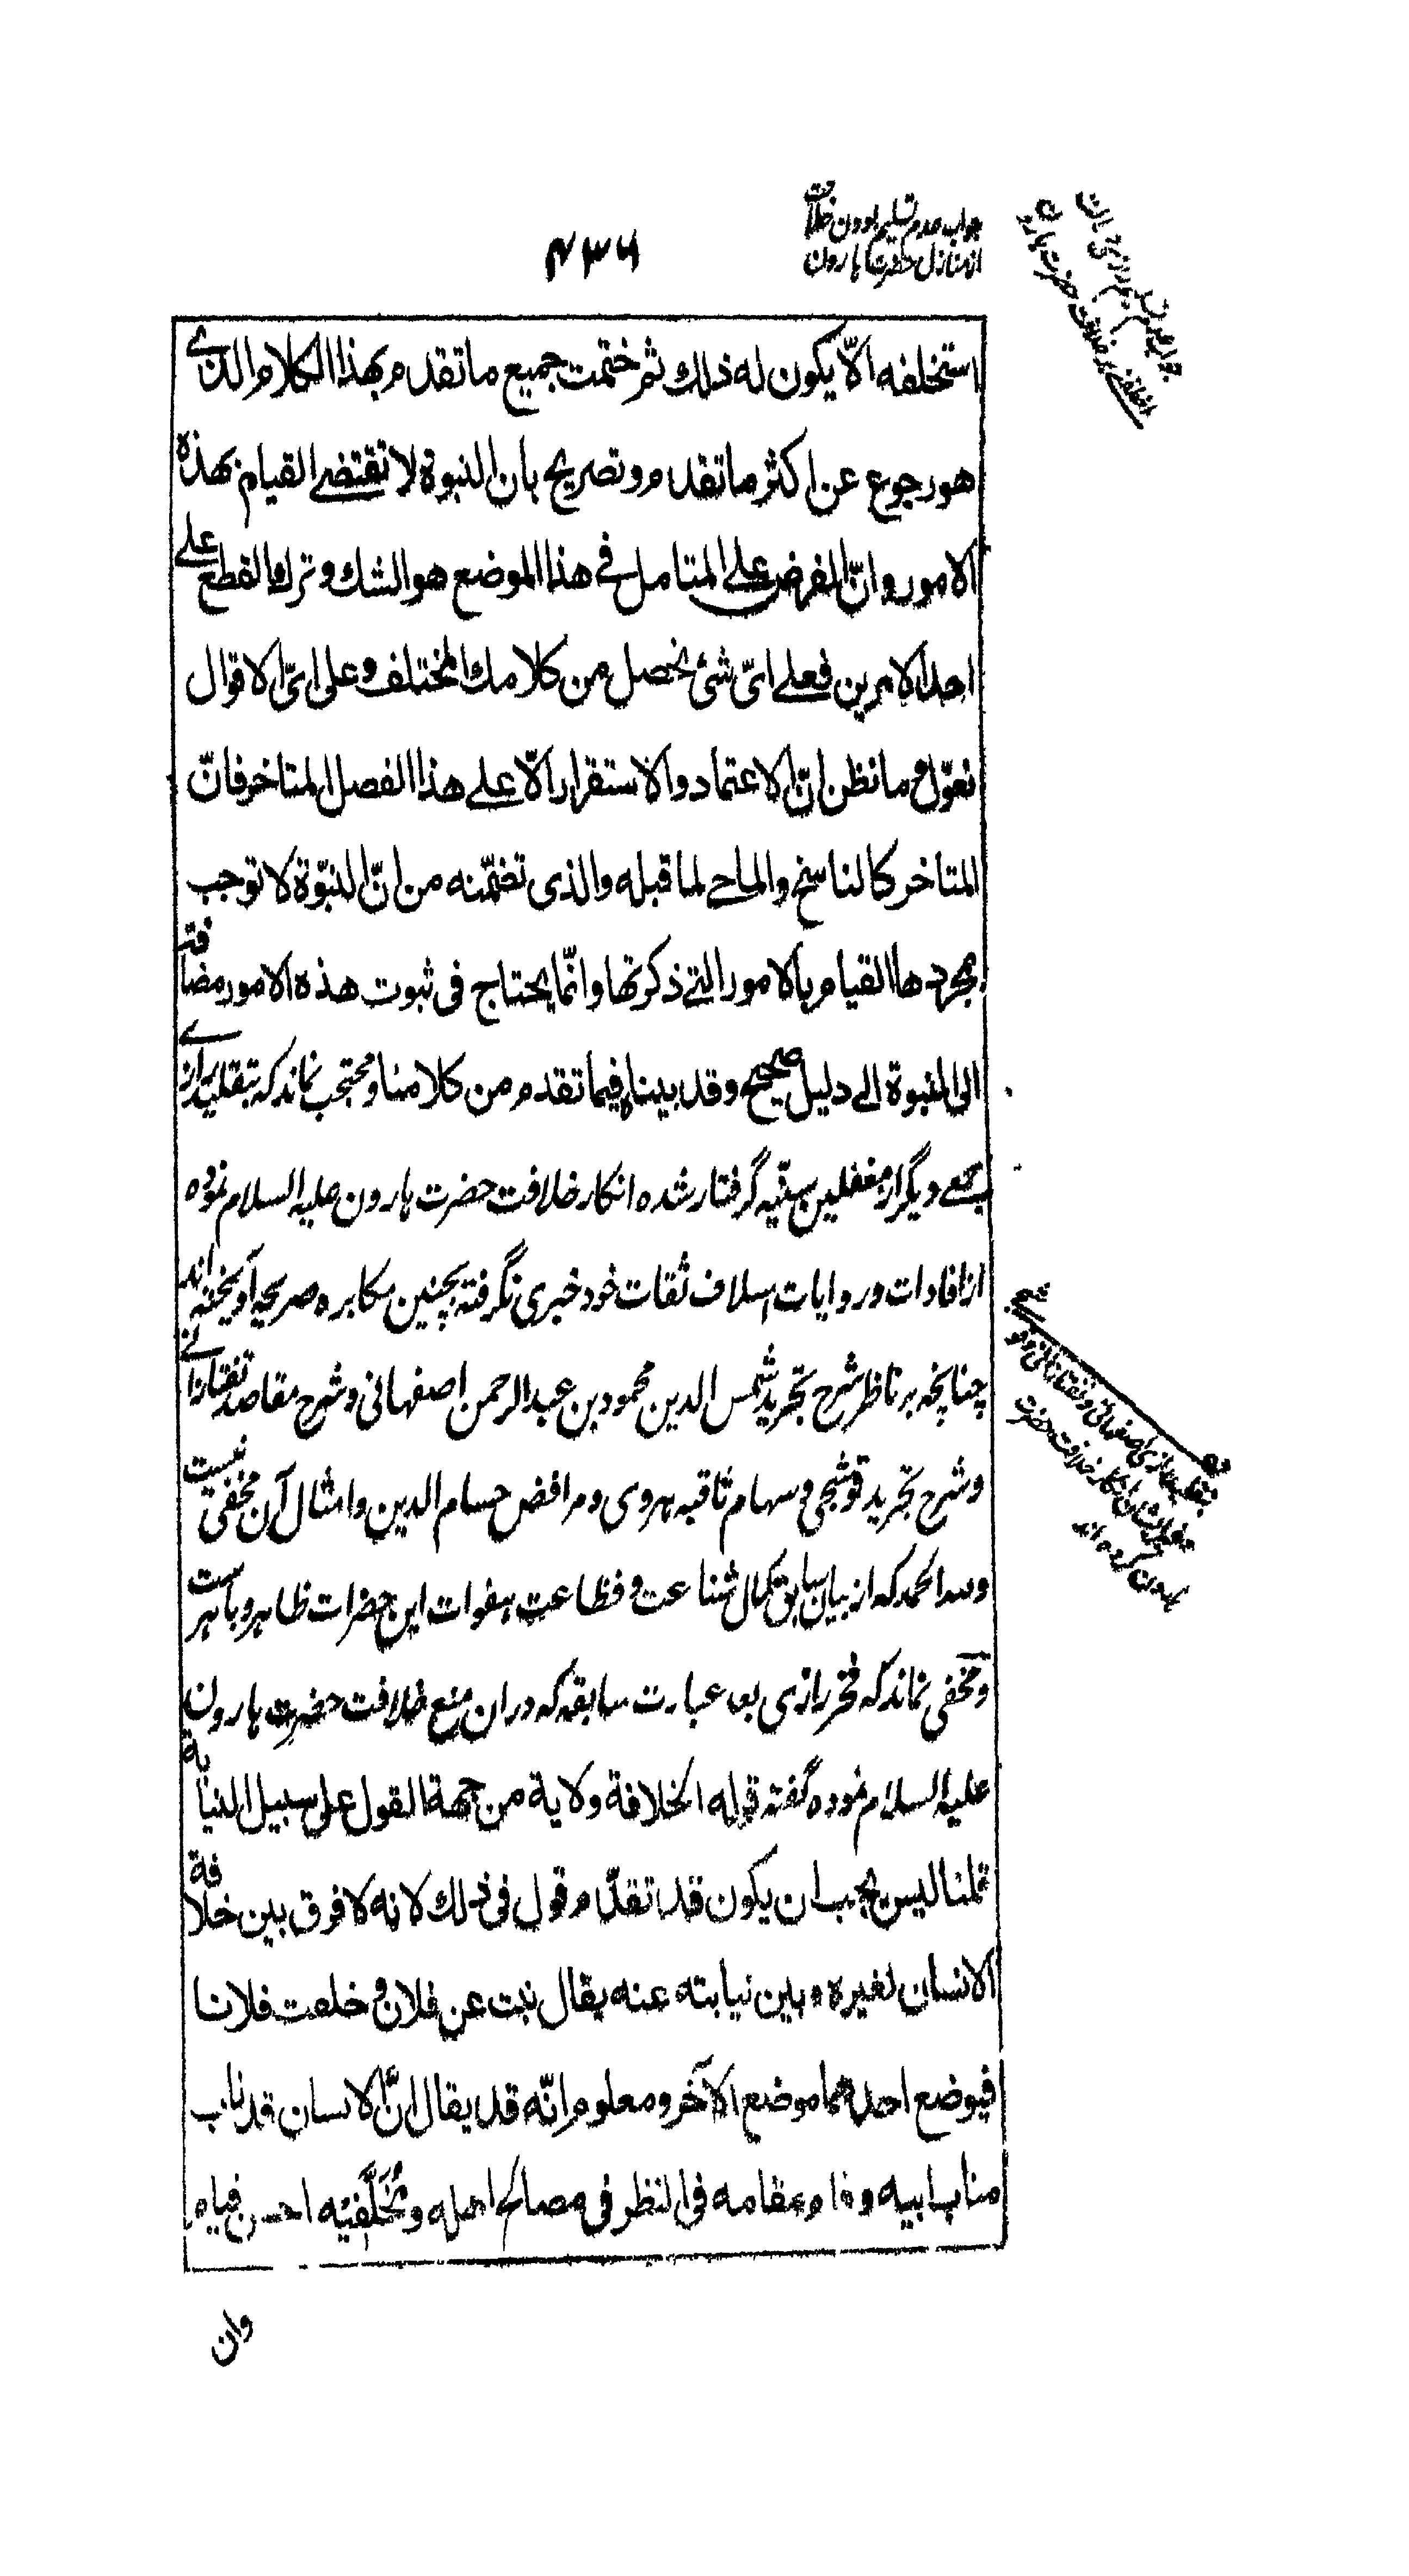 ۴۳۶
جواب عدم تسلیم بودن خلافت
از منازل حضرت هارون
استخلفه الّا یکون له ذلك ثم ختمت جمیع ما تقدم بهذا الکلام الذی
هو رجوع عن اکثر ما تقدم و تصریح بان النبوة لا تقتضے القیام بهذه
الامور و انّ الفرض علی المتامل فے هذا الموضع هو الشك و ترك القطع علے
احد الامرین فعلے ایّ شئ نحصل من کلامك المختلف و علی ایّ الاقوال
نعوّل و ما نظن انّ الاعتماد و الاستقرار الّا علے هذا الفصل المتاخر فانّ
المتاخر کالناسخ و الماحے لما قبله و الذی تضمّنه من انّ النبوّة لا توجب
بمجردها القیام بالامور التے ذکرتها و انّما یحتاج فی ثبوت هذه الامور مضافة
الی النبوة الے دلیل صحیح و قد بیناه فیما تقدم من کلامنا و محتجب نماند که بتقلید رازے
جمعے دیگر از مغفلین سنّیه گرفتار شده انکار خلافت حضرت هارون علیه السلام نموده
از افادات و روایات اسلاف ثقات خود خبری نگرفته بچنین مکابره صریحه آویخته اند
چنانچه بر ناظر شرح تجرید شمس الدین محمود بن عبد الرحمن اصفهانی و شرح مقاصد تفتازانے
و شرح تجرید قوشجی و سهام ثاقبه هروی و مرافض حسام الدین و امثال آن مخفی نیست
و لله الحمد که از بیان سابق کمال شناعت و فظاعت هفوات این حضرات ظاهر و باهرست
و مخفی نماند که فخر رازی بعد عبارت سابقه که دران منع خلافت حضرت هارون
علیه السلام نموده گفته قوله الخلافة ولایة من جهة القول علی سبیل النیابة
قلنا لیس یجب ان یکون قد تقدّم قول فی ذلك لانه لا فرق بین خلافة
الانسان لغیره و بین نیابته عنه یقال نبت عن فلان و خلفت فلانا
فیوضع احدهما موضع الآخر و معلوم انّه قد یقال انّ الانسان قد ناب
مناب ابیه و قام مقامه فی النظر فی مصالح اهله و مُخَلَّفیه احسن قیام
و ان
بتقلید رازی اصفهانی و تفتازانی و قوشجی
و غیرایشان انکار خلافت حضرت
هارون کرده اند